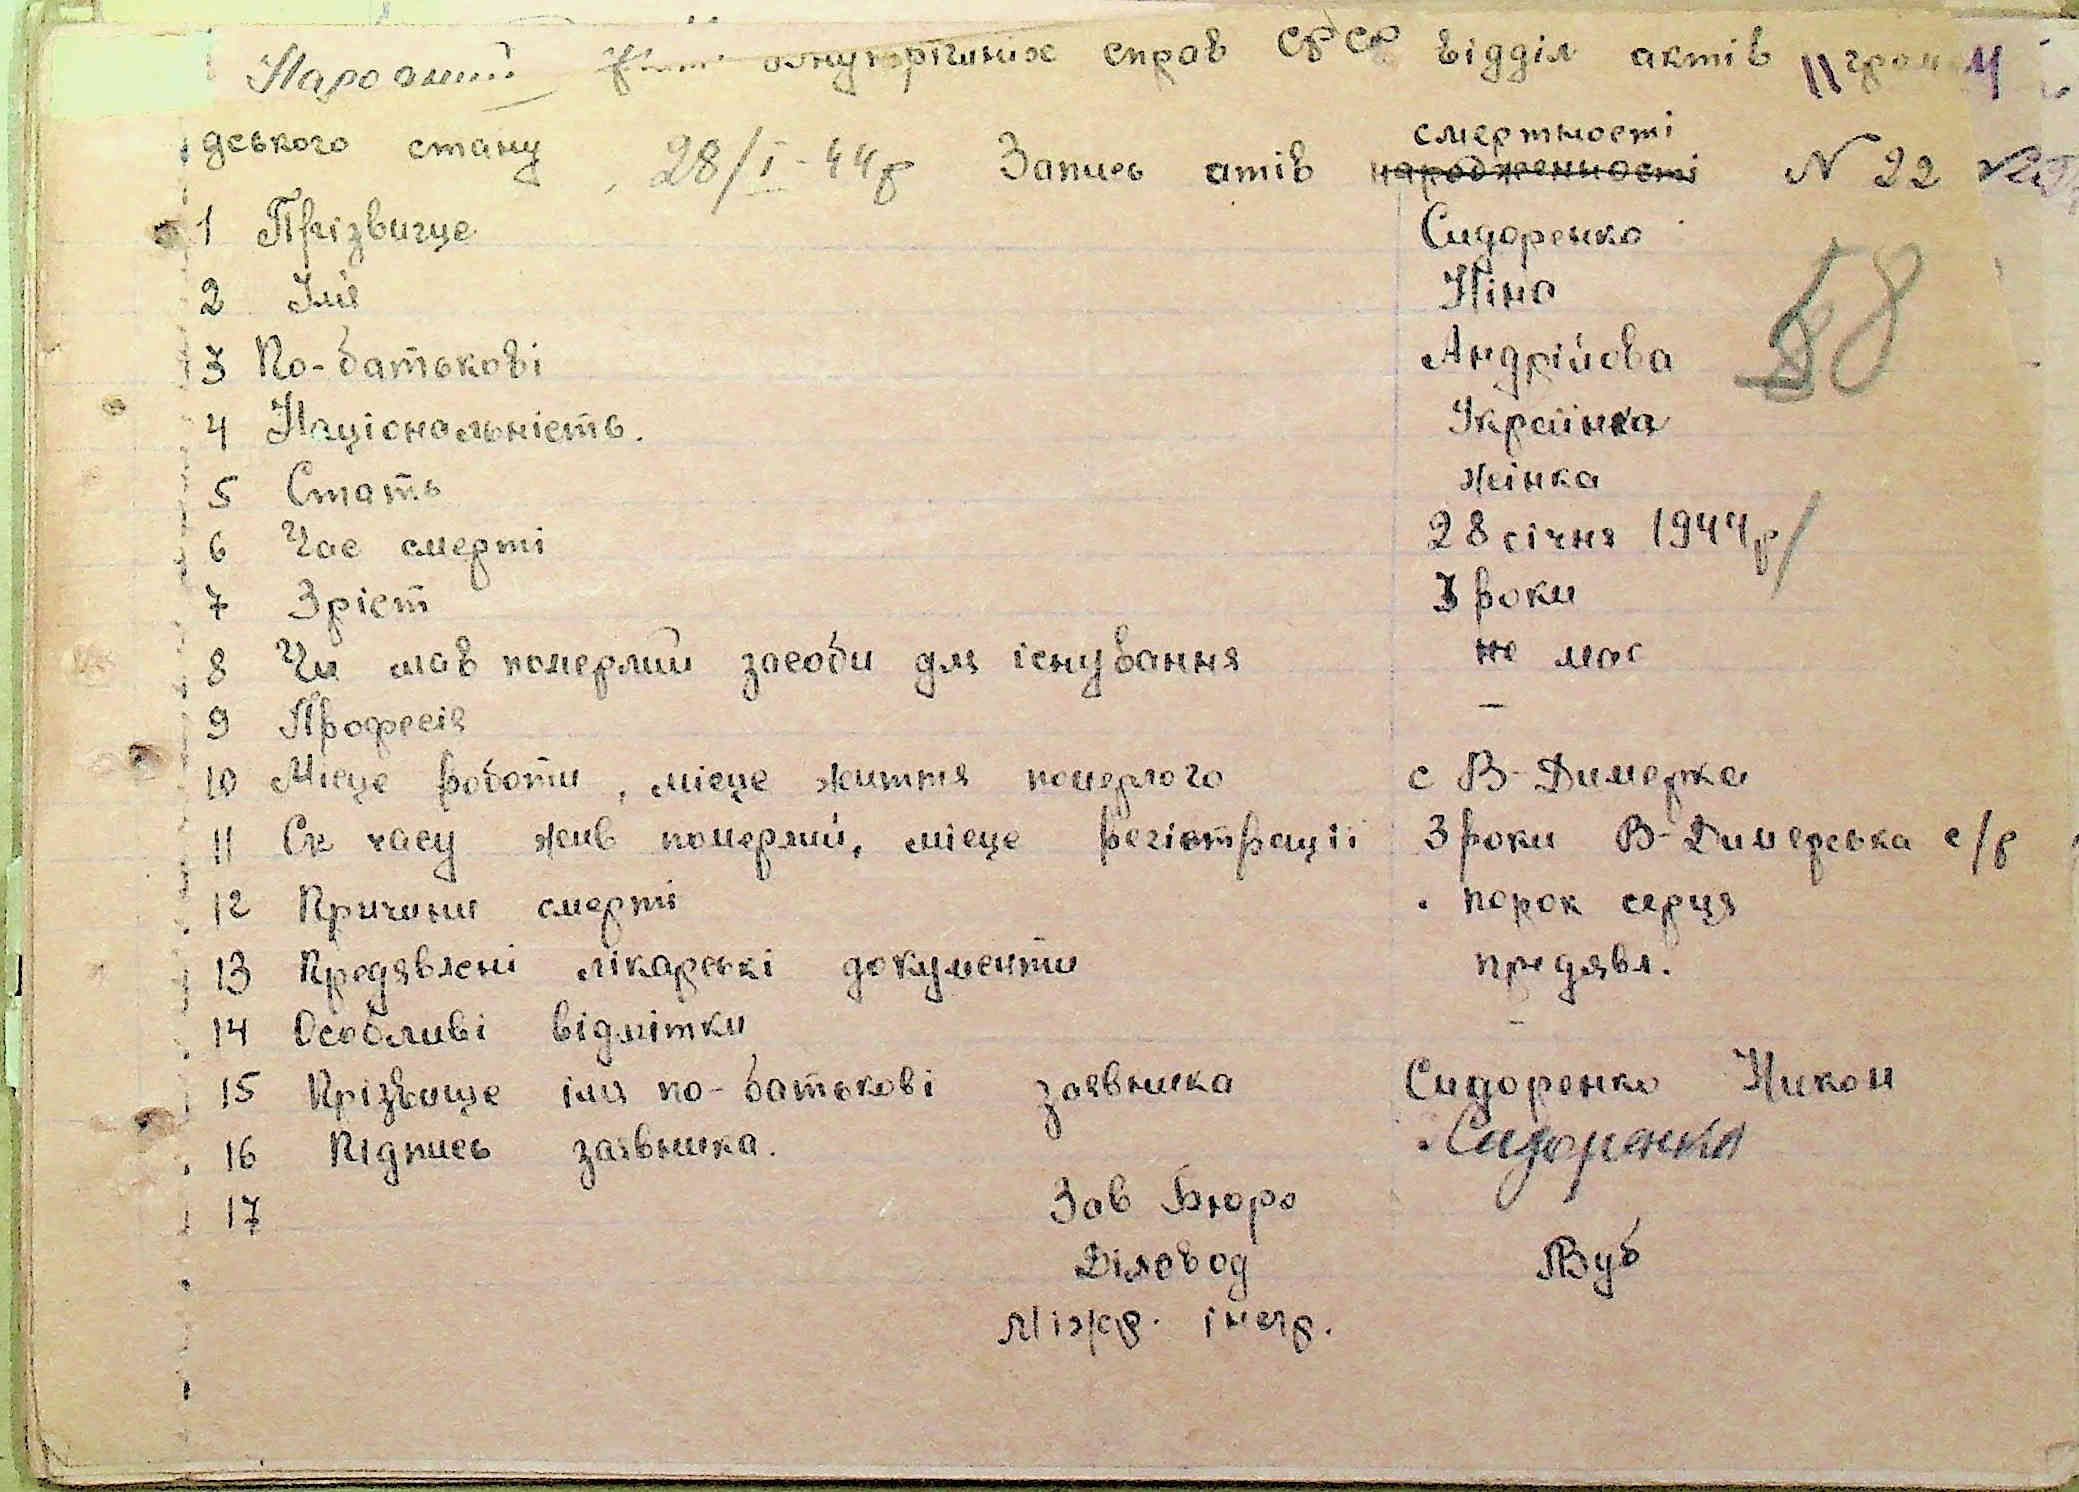 Народний внутрішніх справ СРСР відділ актів гром
дського стану 28/I-44р Запись атів народженности смертности N 22
1 Прізвище Сидоренко
2 Імя Ніна
58
3 По-батькові Андрійова
4 Національність. Українка
5 Стать жінка
6 Час смерті 28 січня 1944р/
7 Зріст 3 роки
8 Чи мав померлий засоби для існування не має
9 Професія –
10 Місце роботи, місце життя померлого с В-Димерка
11 Ск часу жив померлий, місце регістрації 3 роки В-Димерська с/р
12 Причини смерті порок серця
13 Предявлені лікарські документи предявл.
14 Особливі відмітки –
15 Прізвище імя по-батькові заявника Сидоренко Никон
16 Підпись заявника. Сидоренко
17 Зав Бюро
Діловод Вуб
Міжр. інспр.